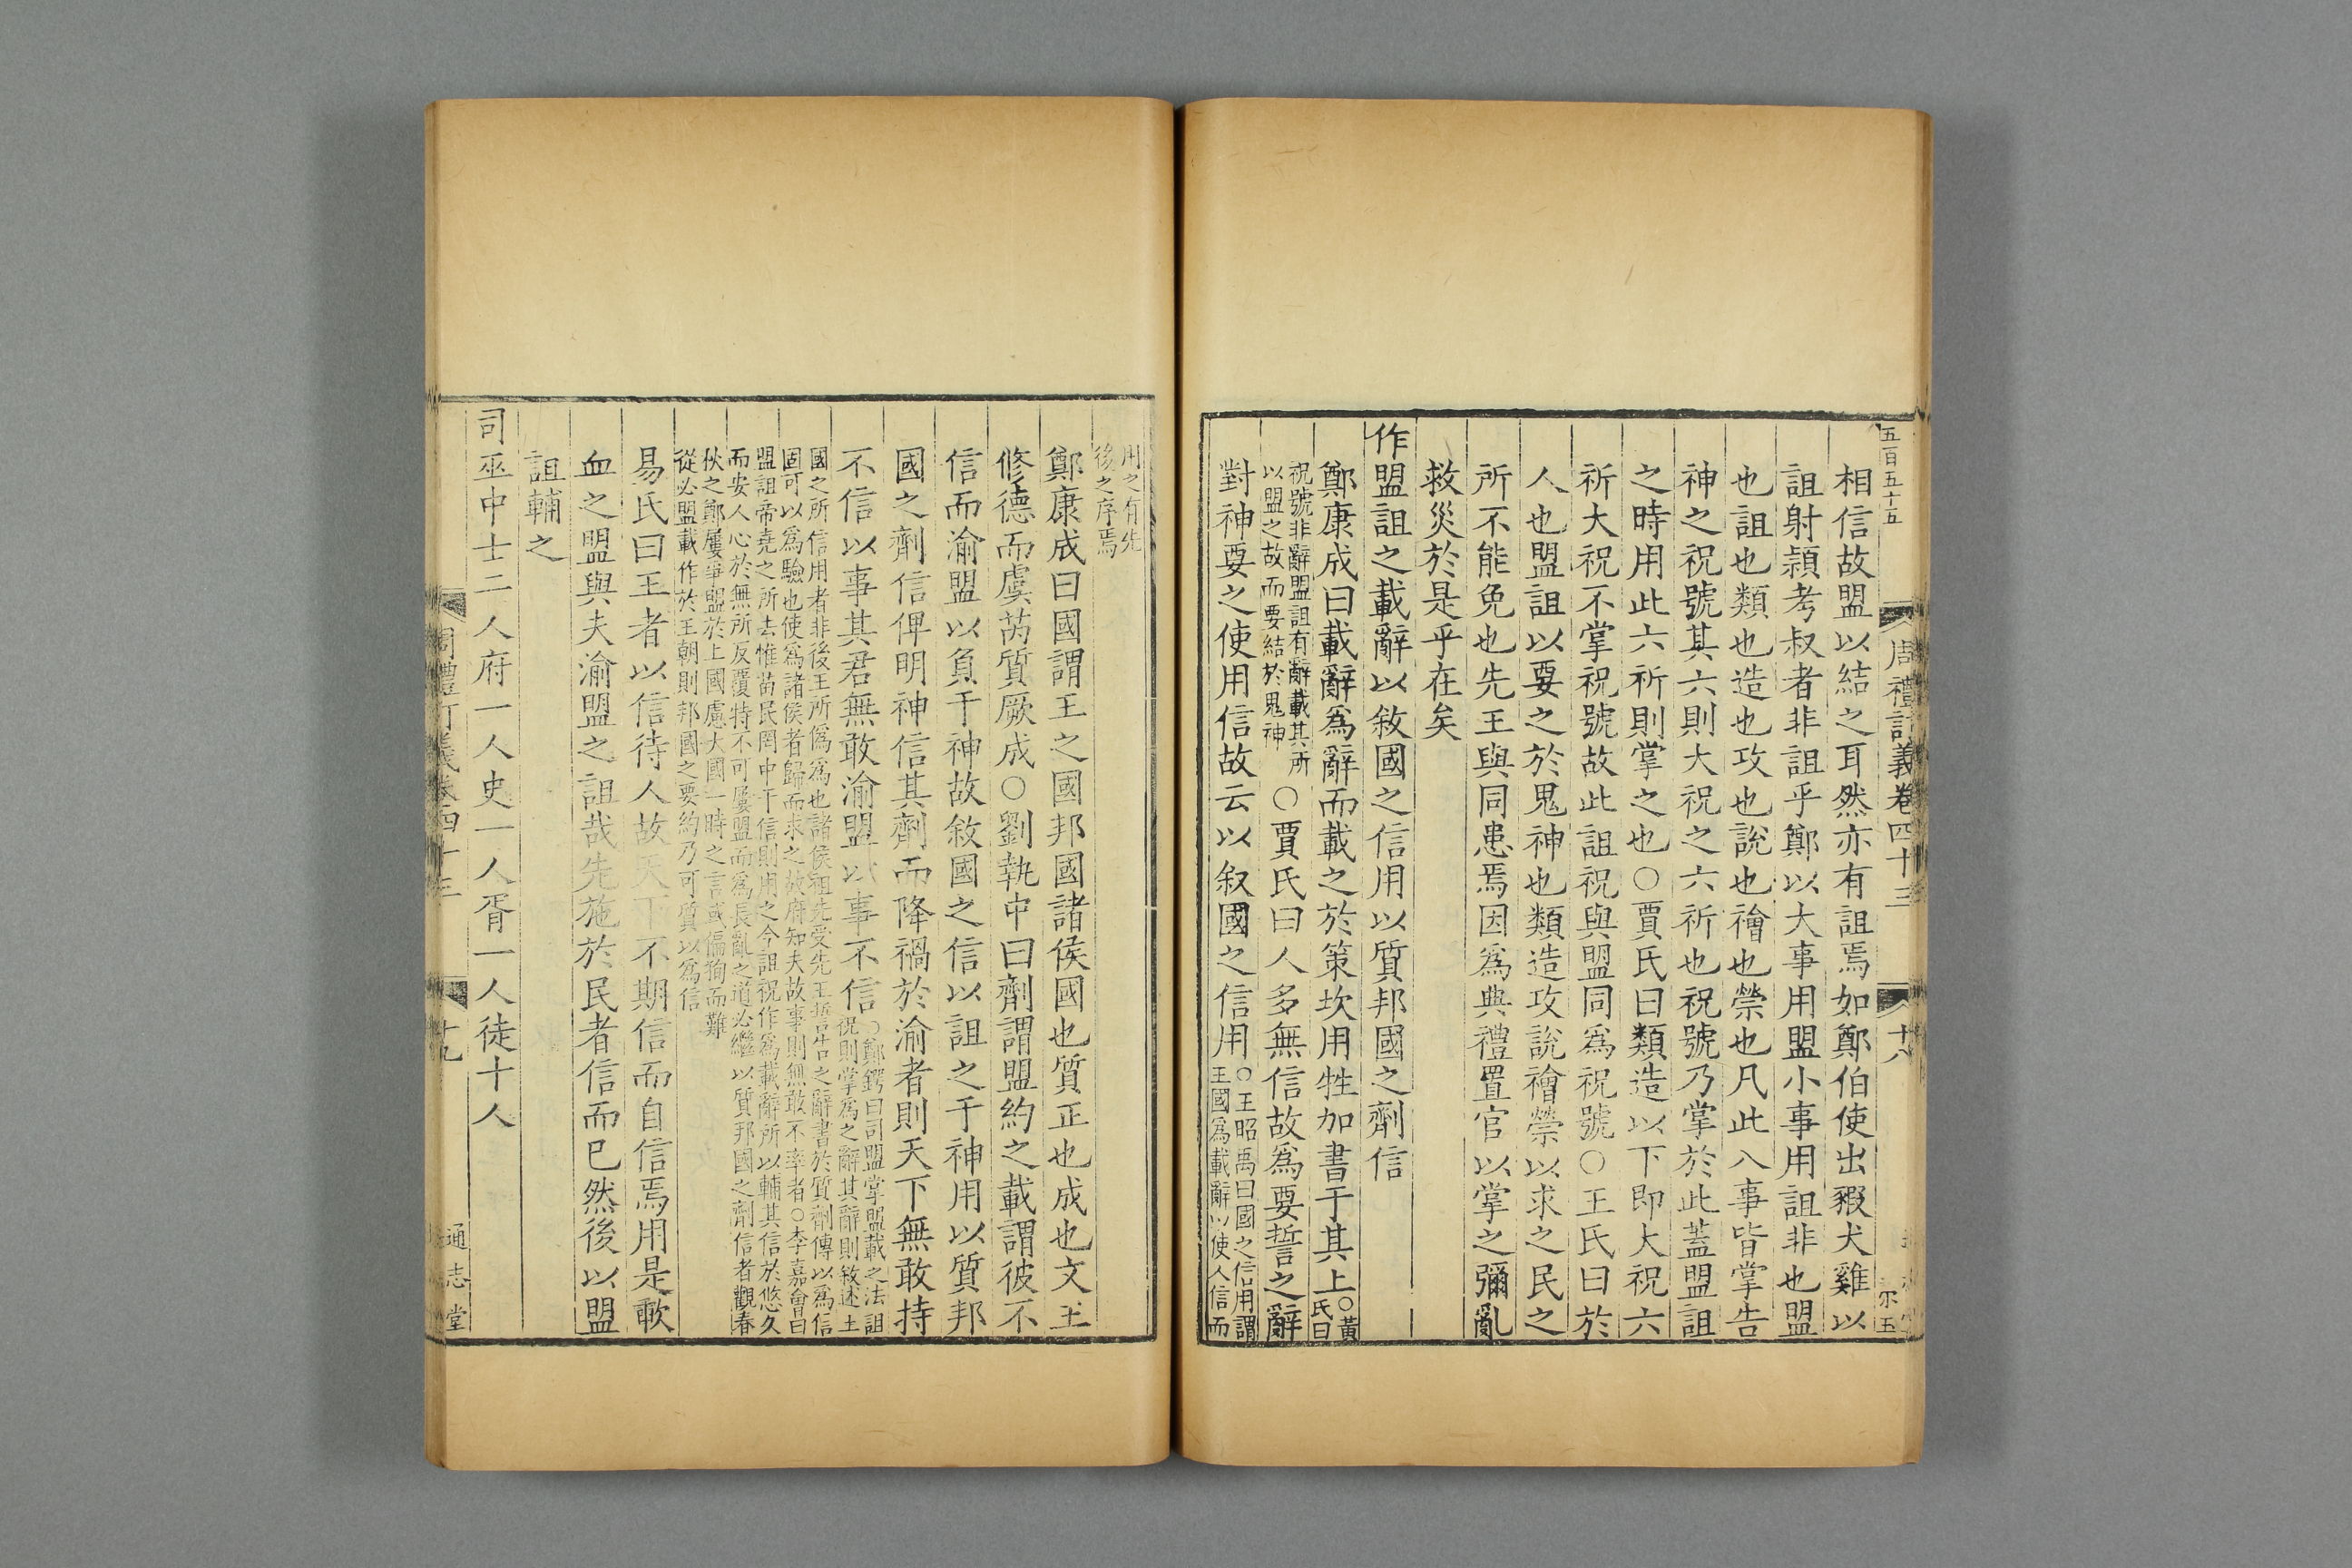 五百五十五 周禮訂義卷四十三 十八
相信故盟以結之耳然亦有詛焉如鄭伯使出豭犬雞以
詛射穎考叔者非詛乎鄭以大事用盟小事用詛非也盟
也詛也類也造也攻也說也禬也禜也凡此八事皆掌告
神之祝號其六則大祝之六祈也祝號乃掌於此蓋盟詛
之時用此六祈則掌之也○賈氏曰類造以下即大祝六
祈大祝不掌祝號故此詛祝與盟同為祝號○王氏曰於
人也盟詛以要之於鬼神也類造攻說禬禜以求之民之
所不能免也先王與同患焉因為典禮置官以掌之彌亂
救災於是乎在矣
作盟詛之載辭以敘國之信用以質邦國之劑信
鄭康成曰載辭為辭而載之於策坎用牲加書于其上○黃
氏曰
祝號非辭盟詛有辭載其所
以盟之故而要結於鬼神
○賈氏曰人多無信故為要誓之辭
對神要之使用信故云以叙國之信用
○王昭禹曰國之信用謂
王國為載辭以使人信而
用之有先
後之序焉
鄭康成曰國謂王之國邦國諸侯國也質正也成也文王
修德而虞芮質厥成○劉執中曰劑謂盟約之載謂彼不
信而渝盟以負于神故敘國之信以詛之于神用以質邦
國之劑信俾明神信其劑而降禍於渝者則天下無敢持
不信以事其君無敢渝盟以事不信
○鄭鍔曰司盟掌盟載之法詛
祝則掌為之辭其辭則敘述王
國之所信用者非後王所為為也諸侯祖先受先王誓告之辭書於質劑傳以為信
固可以為驗也使為諸侯者歸而求之故府知夫故事則無敢不率者○李嘉會曰
盟詛帝堯之所去惟苗民罔中于信則用之今詛祝作為載辭所以輔其信於悠久
而安人心於無所反覆特不可屢盟而為長亂之道必繼以質邦國之劑信者觀春
秋之鄭屢爭盟於上國慮大國一時之言或偏狥而難
從必盟載作於王朝則邦國之要約乃可質以為信
易氏曰王者以信待人故天下不期信而自信焉用是歃
血之盟與夫渝盟之詛哉先施於民者信而已然後以盟
詛輔之
司巫中士二人府一人史一人胥一人徒十人
周禮訂義卷四十三 十九 通志堂